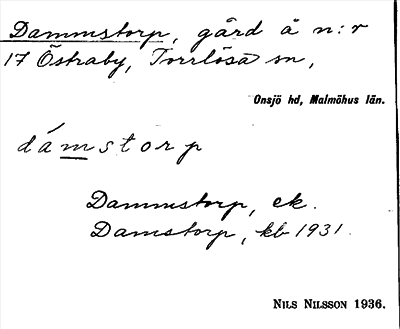 Dammstorp, gård å n:r
17 Östraby, Torrlösa sn,
Onsjö hd, Malmöhus län.
dámstorp
Dammstorp, ek.
Damstorp, kb 1931.
NILS NILSSON 1936.